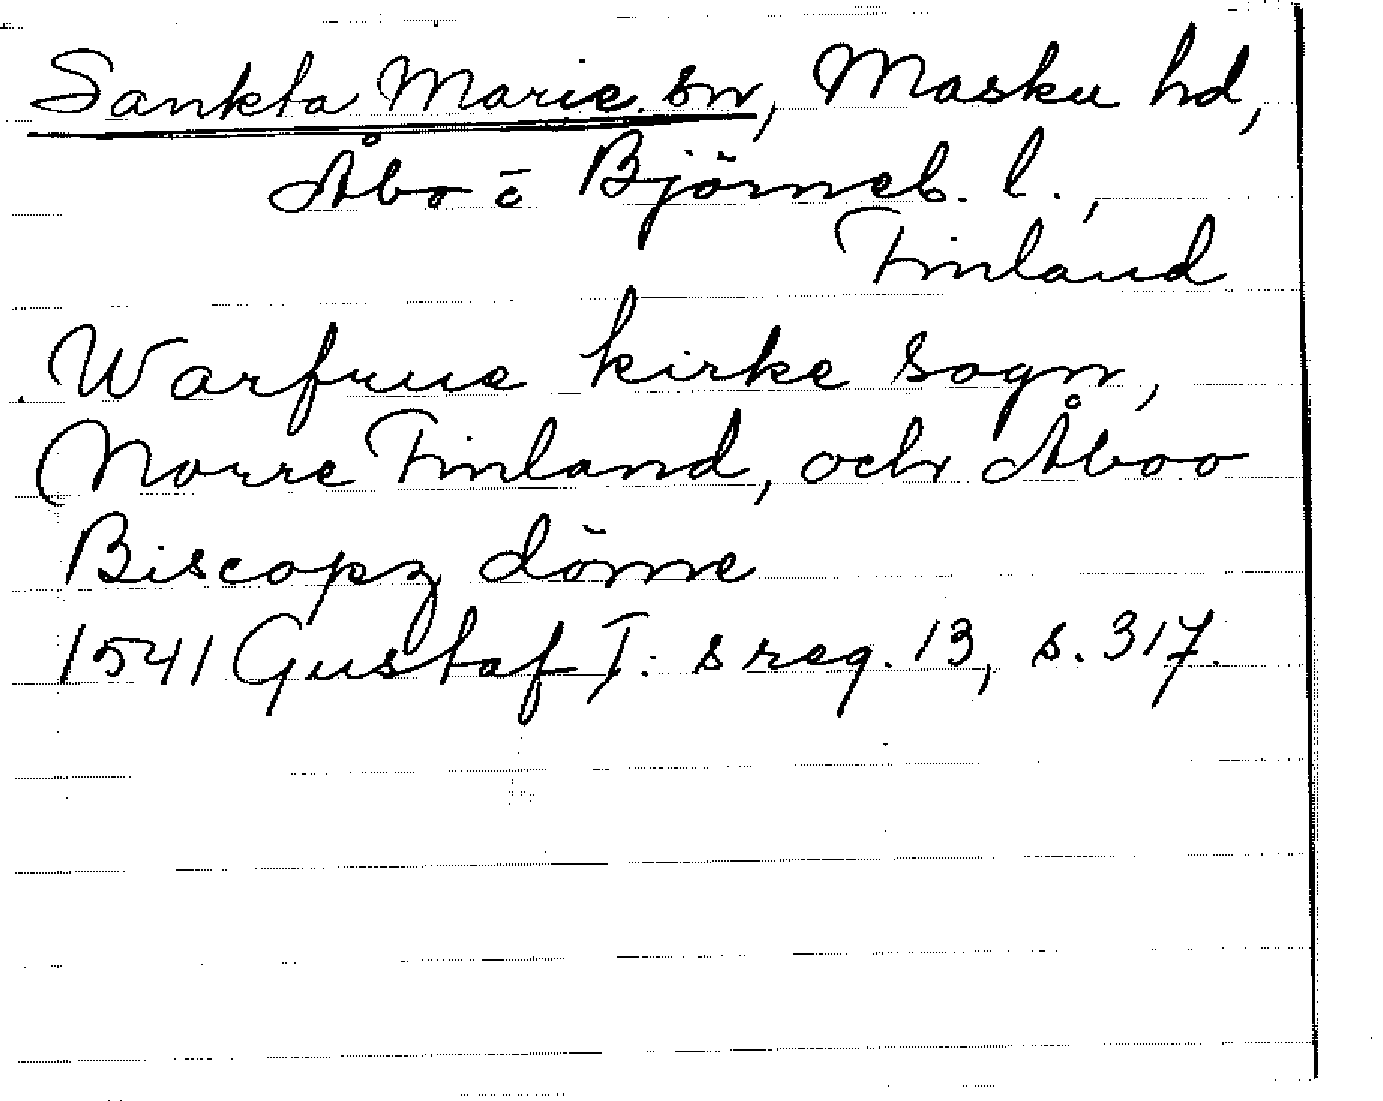 Sankta Marie sn, Masku hd,
Åbo o Björneb. l.,
Finland
Warfrue kirke sogn,
Norre Finland, och Åboo
Biscopz döme
1541 Gustaf I:s reg. 13, s. 317.